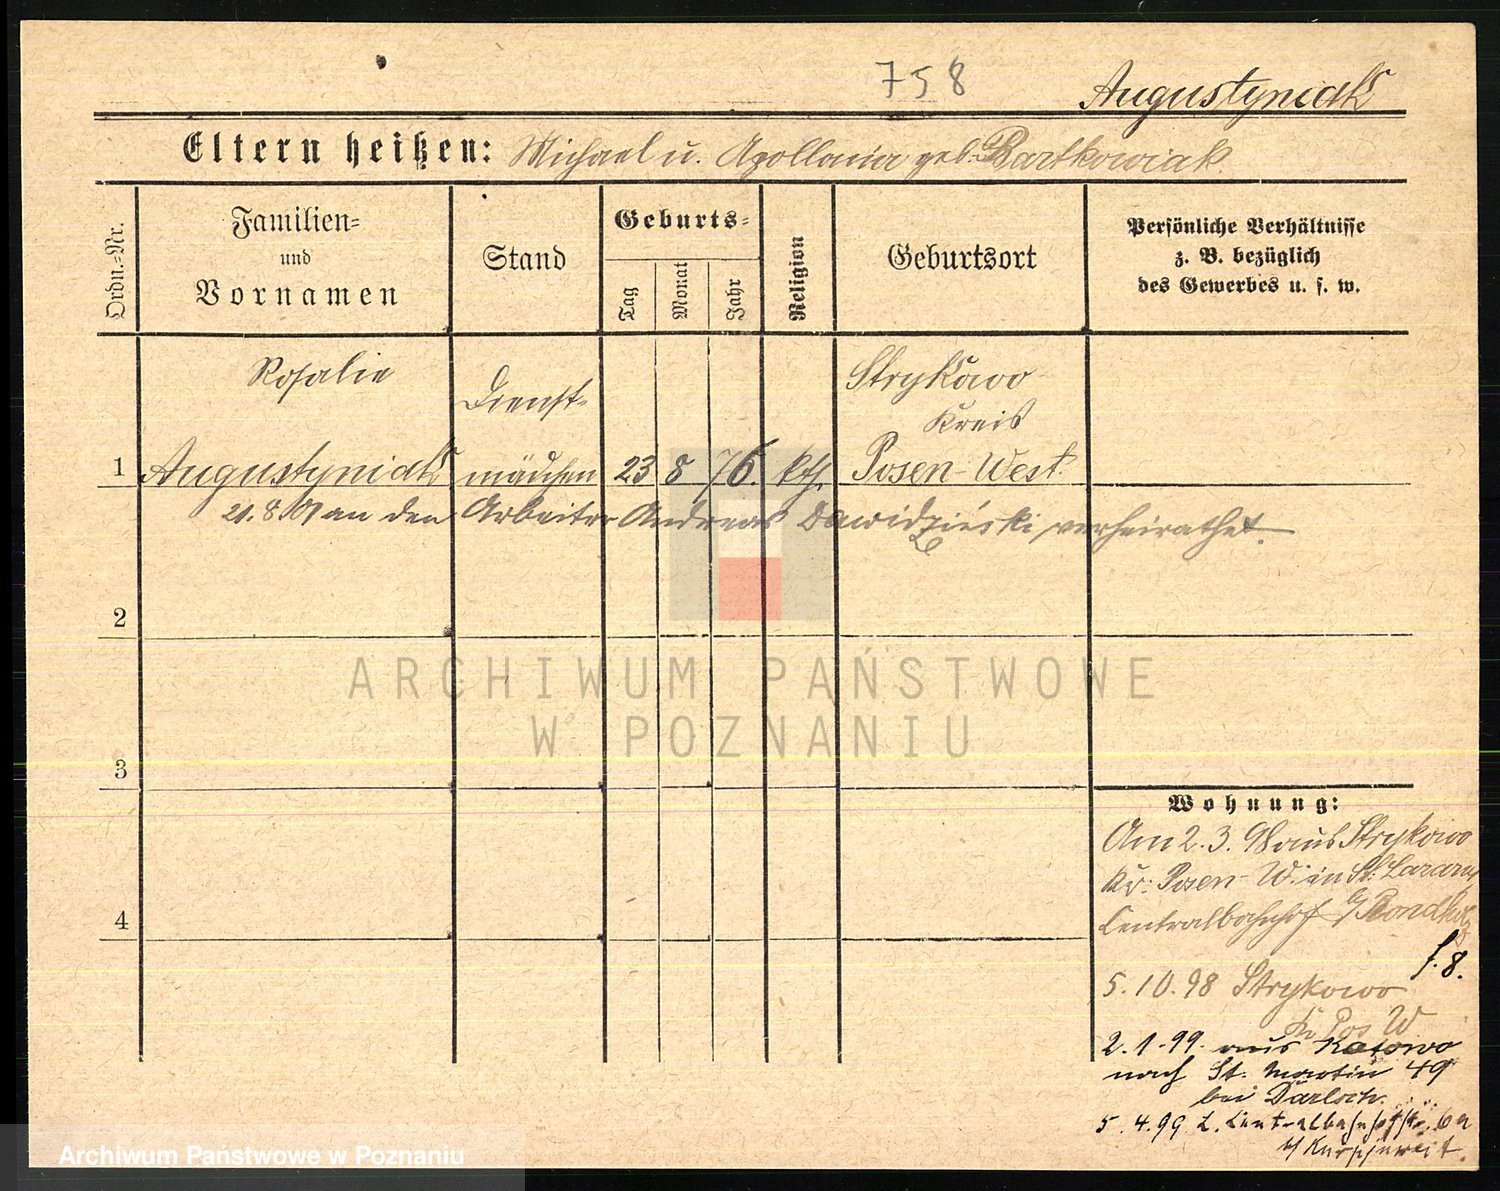 758
Augustyniak
Eltern heißen: Michael u. Apollonia geb. Bartkowiak
Ordn.-Nr.
Familien-
und
Vornamen
Stand
Geburts-
Tag
Monat
Jahr
Religion
Geburtsort
Persönliche Verhältnisse
z. B. bezüglich
des Gewerbes u. s. w.
Rosalie
Dienst-
Strykowo
Kreis
1 Augustyniak mädchen 23 8 76. kth. Posen-West
21.8. an den Arbeiter Andreas verheirathet.
2
3
4
ARCHIWUM PAŃSTWOWE
W POZNANIU
Wohnung:
Am 2.3.98 aus Strykowo
Kr: Posen-W. in St. Lazarus
Centralbahnhof b/
f. 8.
5.10.98 Strykowo
Kr Pos W
2.1.99. aus
nach St. Martin 49
bei
5.4.99 L. Centralbahnhofstr. 6a
b/
Archiwum Państwowe w Poznaniu